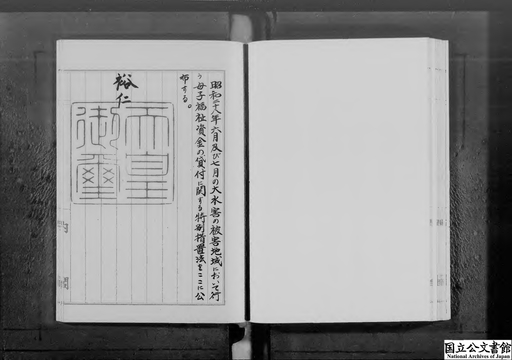 昭和二十八年六月及び七月の大水害の被害地域において行
う母子福祉資金の貸付に関する特別措置法をここに公
布する。
裕仁
天皇御璽
国立公文書館
National Archives of Japan